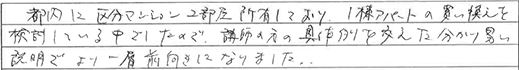 都内に区分マンション2部屋所有しており、1棟アパートの買い換えを
検討している中でしたので、講師の方の具体例を交えた分かり易い
説明でより一層前向きになりました。